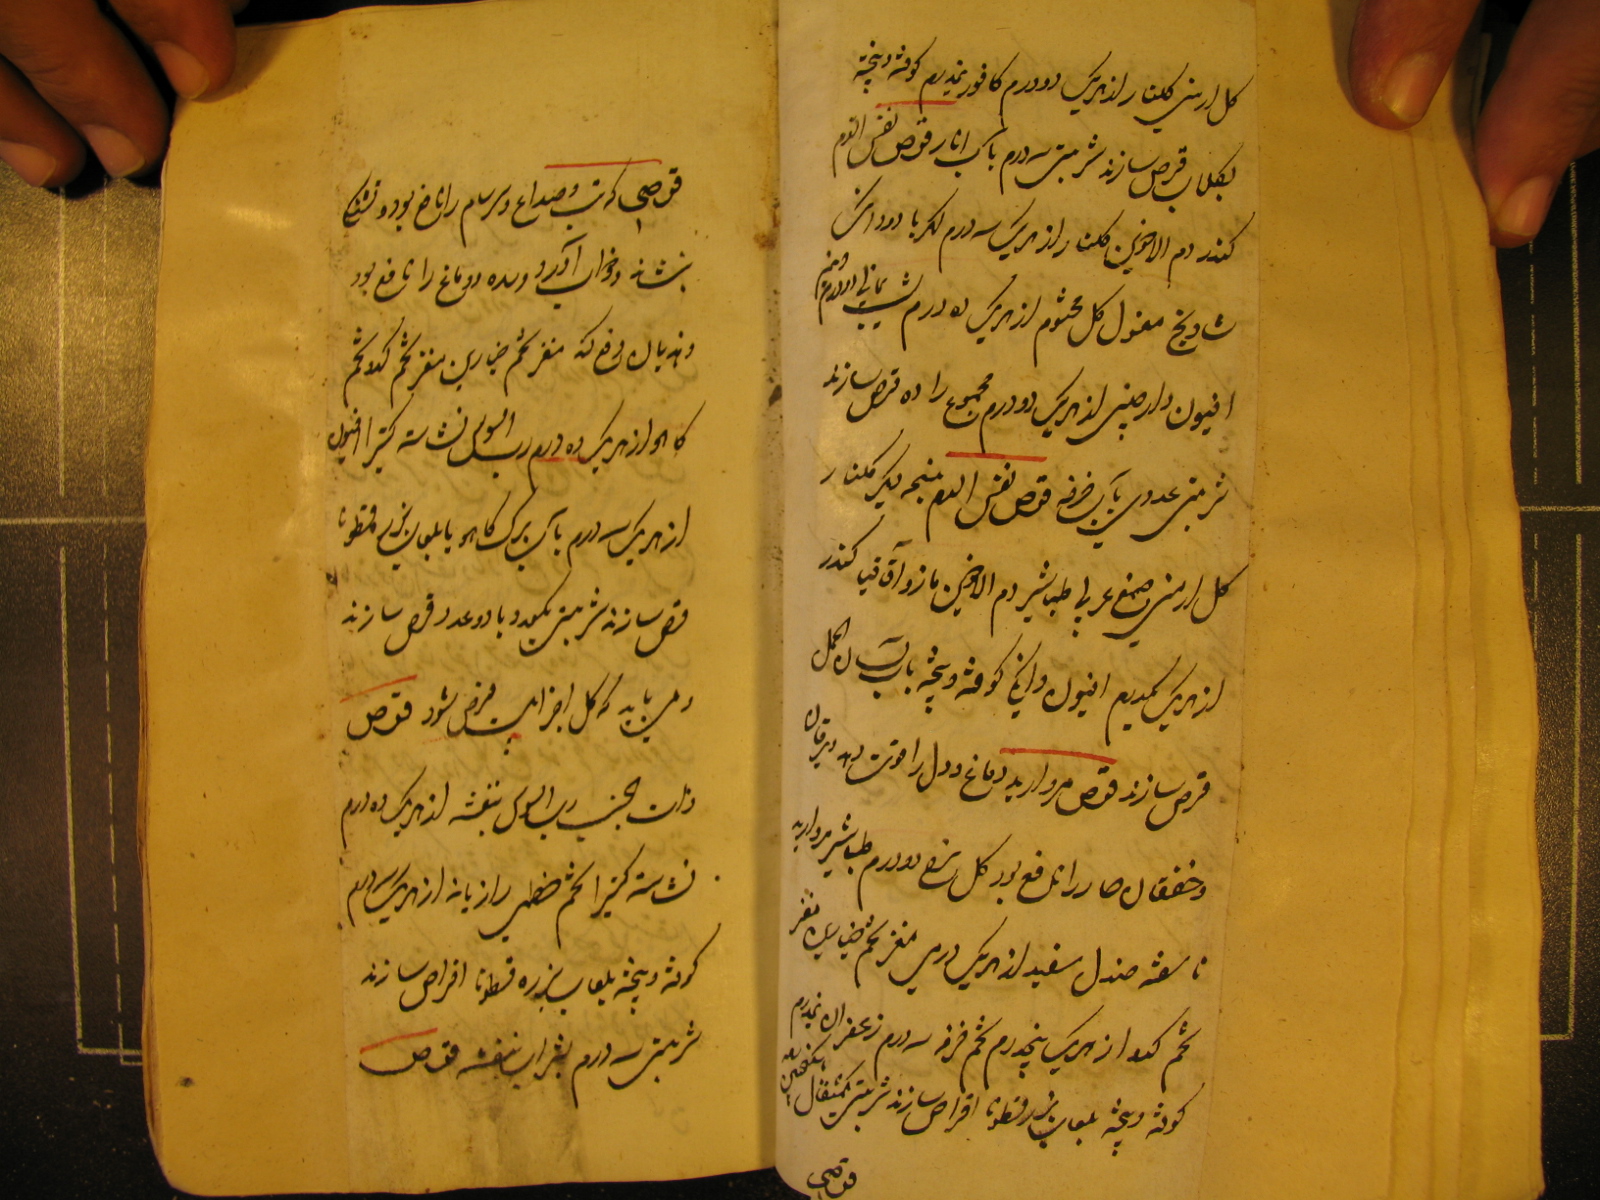 کل ارمنی کلنار از هریک دو درم کافور نیمدرم کوفته و بیخته
بکلاب قرص سازند شربتی سه درم باب انار قرص نفس الدم
کندر دم الاخوین کلنار از هریک سه درم
شادنج مغسول کل مختوم از هریک ده درم شب یمانی دو درم و نیم
افیون دارچینی از هریک دو درم مجموع را ده قرص سازند
شربتی عددی بآب خرفه قرص نفس الدم نسخه دیکر کلنار
کل ارمنی صمغ عربی طباشیر دم الاخوین مازو آقاقیا کندر
از هریک یکدرم افیون دانکی کوفته و بیخته بآب لسان الحمل
قرص سازند قرص مروارید دماغ و دل را قوت دهد و یرقان
و خفقان حار را نافع بود کل سرخ دو درم طباشیر مروارید
ناسفته صندل سفید از هریک درمی مغز تخم خیارین مغز
تخم کدو از هریک پنجدرم تخم خرفه سه درم زعفران نیمدرم
کوفته و بیخته بلعاب بزرقطونا اقراص سازند شربتی یکمثقال بسکنجبین
قرصی
قرصی که تب و صداع و سرسام را نافع بود و تشنکی
بنشاند و خواب آورد و دماغ را نافع بود
و هذیان دفع کند مغز تخم خیارین مغز تخم کدو تخم
کاهو از هریک ده درم رب السوس نشاسته کتیرا افیون
از هریک سه درم بآب برک کاهو یا بلعاب بزرقطونا
قرص سازند شربتی یکعدد یا دو عدد قرص سازند
و می باید که کل اجزا قرص شود قرص
ذات الجنب رب السوس بنفشه از هریک ده درم
نشاسته کتیرا تخم خطمی رازیانه از هریک سه درم
کوفته و بیخته بلعاب بزره قطونا اقراص سازند
شربتی سه درم بشراب بنفشه قرص